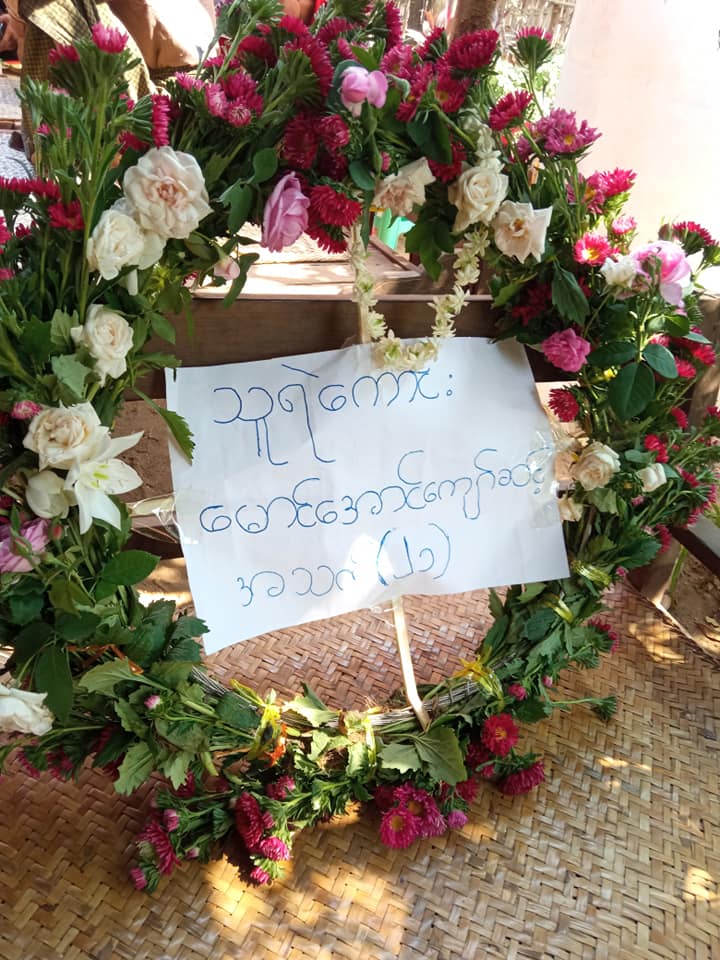 သူရဲကောင်း
မောင်အောင်ကျော်ဆင့်
အသက်(၂၁)